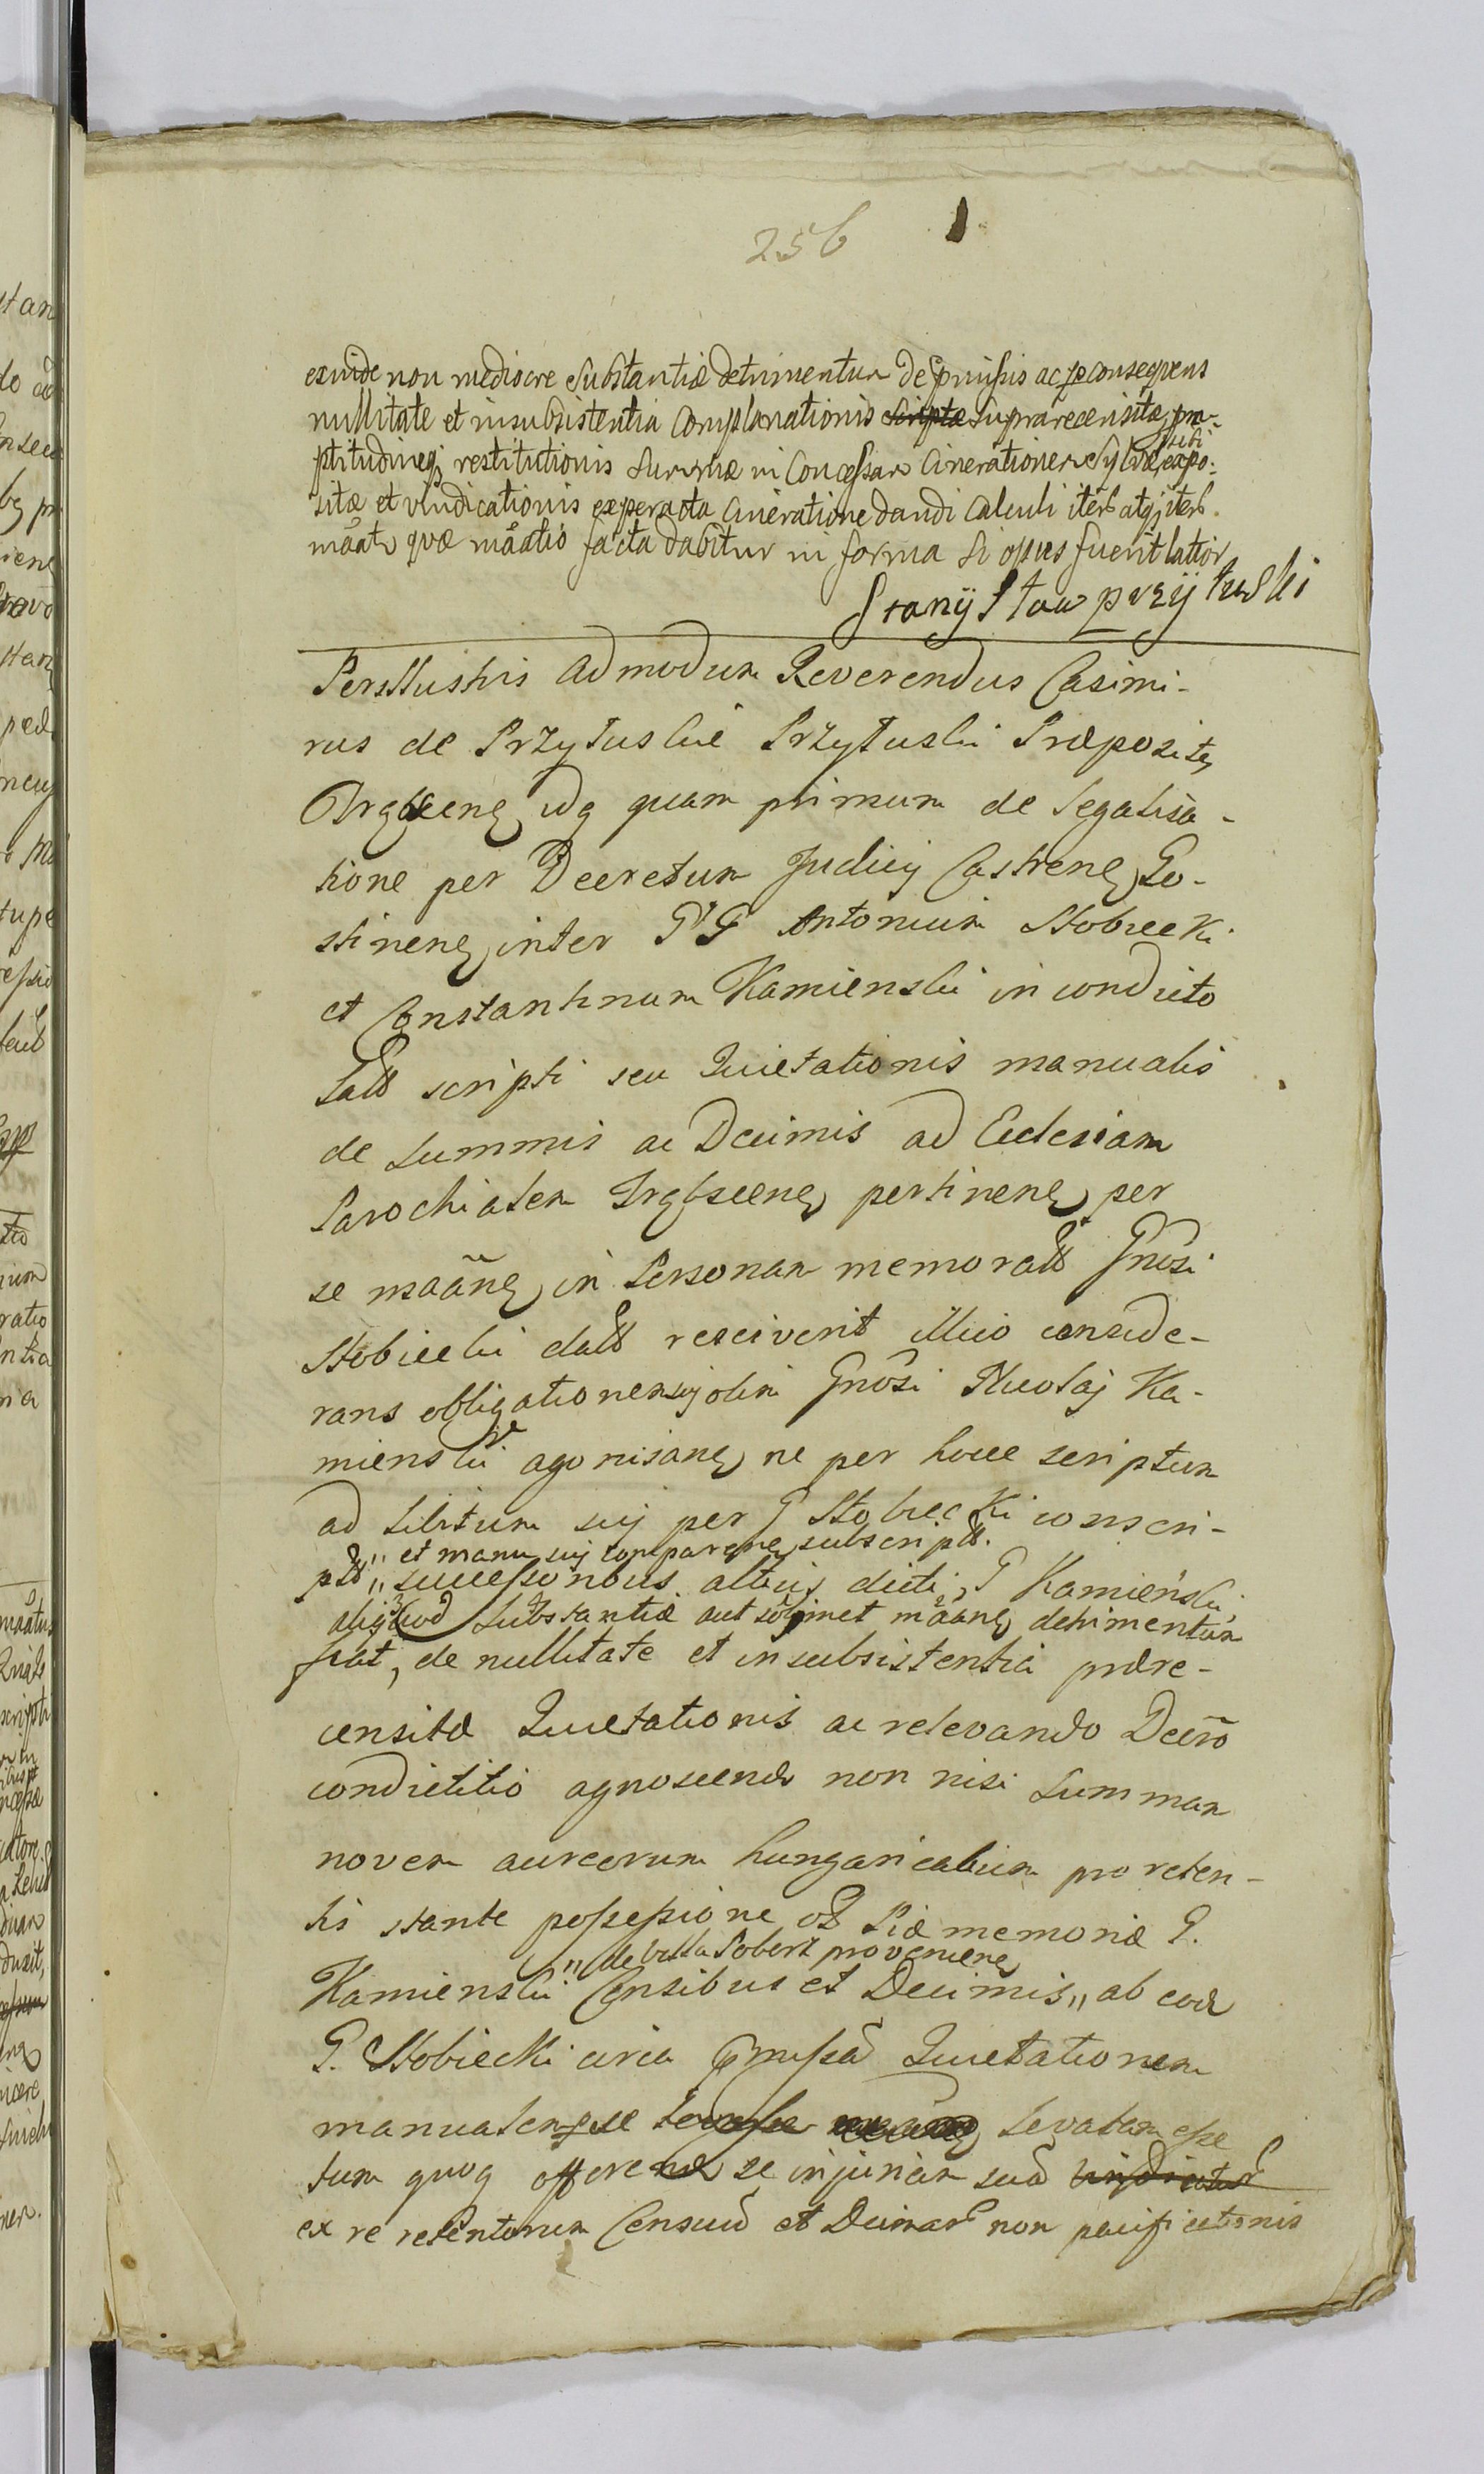 256
exinde non mediocre substantiæ detrimentum de præmissis ac per consequens
nullitate et insubsistentia complanationis scriptæ supra recensitæ, pro-
ptitudineq; restitutionis summæ in concessam cinerationem Sylvæ, sibi expo-
sitæ et vindicationis ex peracta cineratione dandi calculi iterũ atq; iterũ
mãat, quæ mãatio facta dabitur in forma si opus fuerit latior
Stanijsław przijtuski
Perillustris Admodum Reverendus Casimi-
rus de Przytuskie Przytuski Præposite
quam primum de legalisa-
tione per Decretum Judicij Castrene Go-
stinene inter GG Antonium Stobiecki
et Constantinum Kamienski in condicto
lato scripti seu Quietationis manualis
de summis ac Decimis ad Ecclesiam
Parochialem pertinene per
se mãane in Personam memorati Gnosi
Stobiecki dato resciverit illico conside-
rans obligationem sui olim Gnosi Nicolaj Ka-
mienski agonisane ne per hocce scriptum
ad libitum sui per G Stobiecki conscri-
ptũ " et manu sui comparene subscriptũ.
successoribus altius dicti G Kamieński
aliquod substantiæ aut sibimet mãane detrimentum
fiat, de nullitate et insubsistentia prære-
censitæ Quietationis ac relevando Decrõ
condictitio agnoscend non nisi summam
novem aureorum hungaricalium pro reten-
tis stante possessione olim Piæ memoriæ G.
Kamienski Censibus et Decimis " de villa proveniene " ab eod
G. Stobiecki circa præmissã Quietationem
manualem per se levatam esse
tum quoq offerend se injuriam suã vindicatur
ex re retentorum Censuũ et Decimarũ non pacificationis